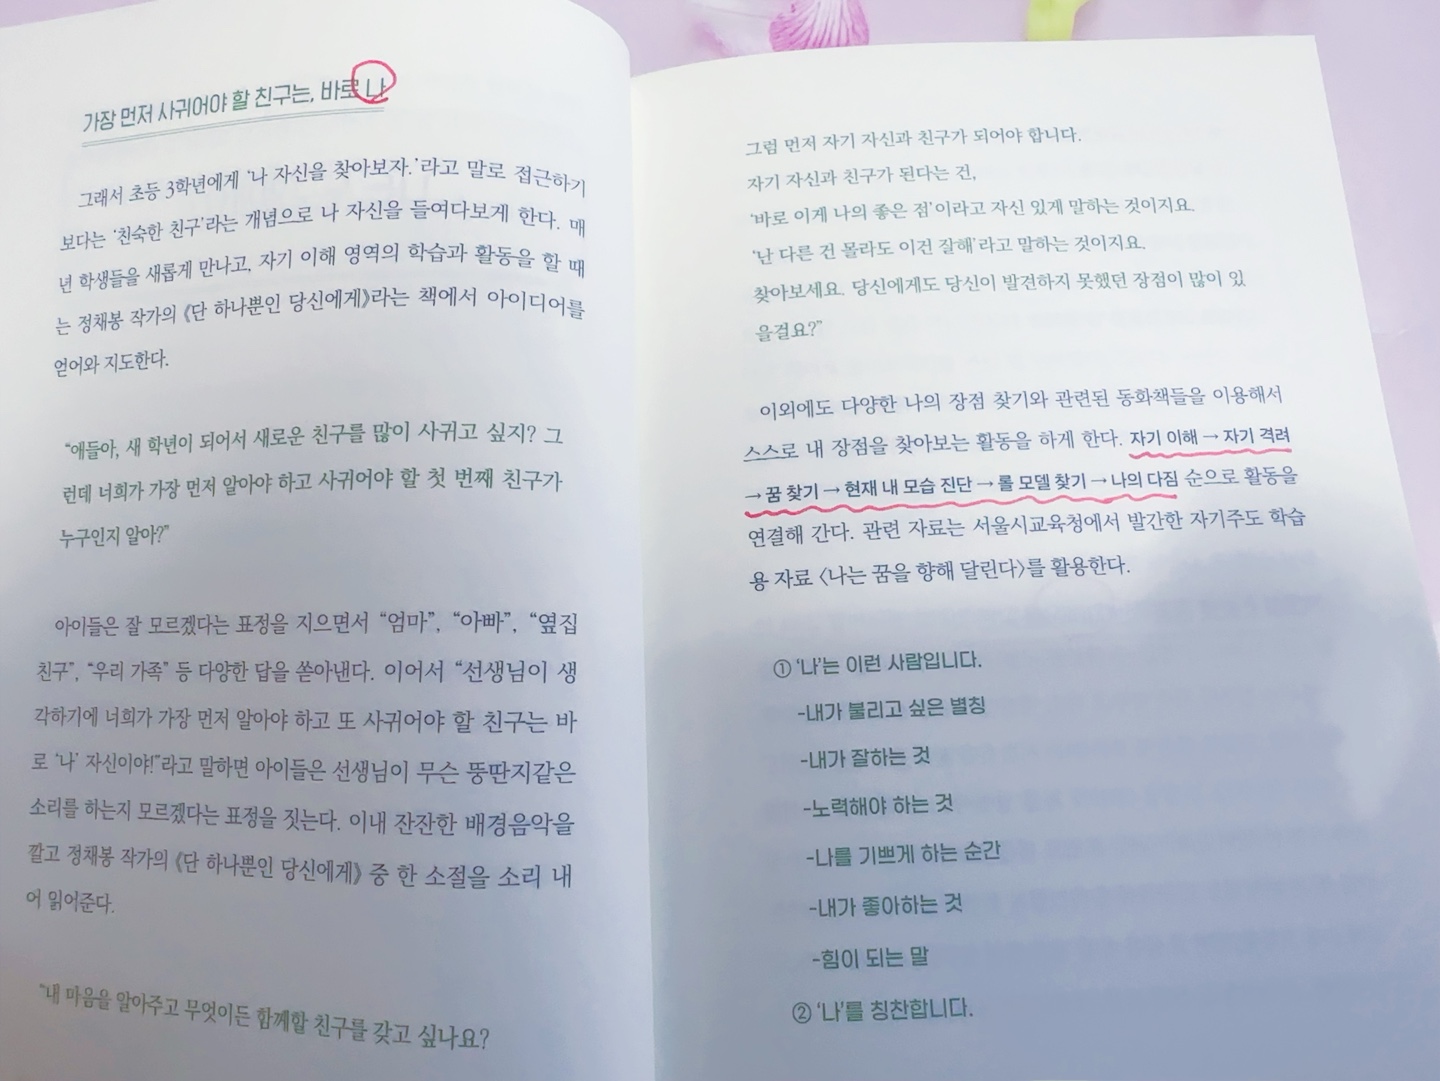 가장 먼저 사귀어야 할 친구는, 바로 나
그래서 초등 3학년에게 '나 자신을 찾아보자.'라고 말로 접근하기
보다는 '친숙한 친구'라는 개념으로 나 자신을 들여다보게 한다. 매
년 학생들을 새롭게 만나고, 자기 이해 영역의 학습과 활동을 할 때
는 정채봉 작가의 《단 하나뿐인 당신에게》라는 책에서 아이디어를
얻어와 지도한다.
"얘들아, 새 학년이 되어서 새로운 친구를 많이 사귀고 싶지? 그
런데 너희가 가장 먼저 알아야 하고 사귀어야 할 첫 번째 친구가
누구인지 알아?"
아이들은 잘 모르겠다는 표정을 지으면서 "엄마", "아빠", "옆집
친구", "우리 가족" 등 다양한 답을 쏟아낸다. 이어서 "선생님이 생
각하기에 너희가 가장 먼저 알아야 하고 또 사귀어야 할 친구는 바
로 '나' 자신이야!"라고 말하면 아이들은 선생님이 무슨 뚱딴지같은
소리를 하는지 모르겠다는 표정을 짓는다. 이내 잔잔한 배경음악을
깔고 정채봉 작가의 《단 하나뿐인 당신에게》 중 한 소절을 소리 내
어 읽어준다.
"내 마음을 알아주고 무엇이든 함께할 친구를 갖고 싶나요?
그럼 먼저 자기 자신과 친구가 되어야 합니다.
자기 자신과 친구가 된다는 건,
'바로 이게 나의 좋은 점'이라고 자신 있게 말하는 것이지요.
'난 다른 건 몰라도 이건 잘해'라고 말하는 것이지요.
찾아보세요. 당신에게도 당신이 발견하지 못했던 장점이 많이 있
을걸요?"
이외에도 다양한 나의 장점 찾기와 관련된 동화책들을 이용해서
스스로 내 장점을 찾아보는 활동을 하게 한다. 자기 이해 → 자기 격려
→ 꿈 찾기 → 현재 내 모습 진단 → 롤 모델 찾기 → 나의 다짐 순으로 활동을
연결해 간다. 관련 자료는 서울시교육청에서 발간한 자기주도 학습
용 자료 〈나는 꿈을 향해 달린다〉를 활용한다.
① '나'는 이런 사람입니다.
-내가 불리고 싶은 별칭
-내가 잘하는 것
-노력해야 하는 것
-나를 기쁘게 하는 순간
-내가 좋아하는 것
-힘이 되는 말
② '나'를 칭찬합니다.